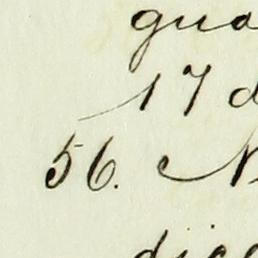 gua
17 d
56. N
dice